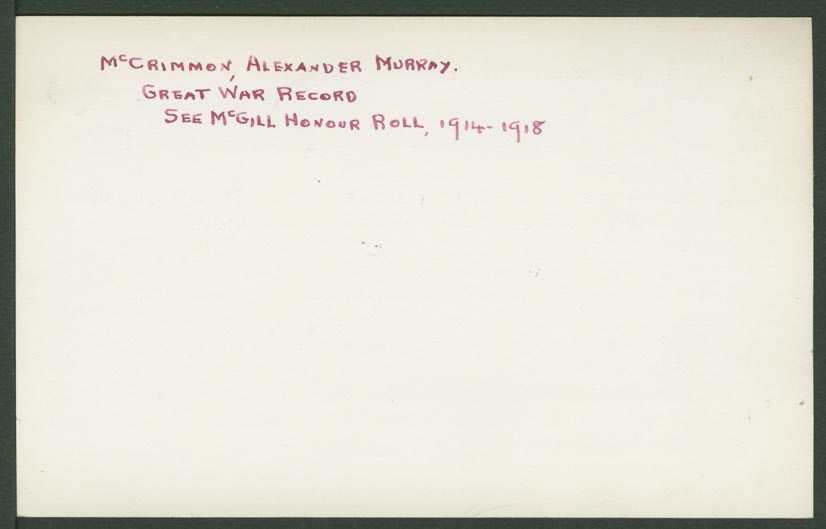 McCRIMMON, ALEXANDER MURRAY.
GREAT WAR RECORD
SEE McGILL HONOUR ROLL, 1914-1918